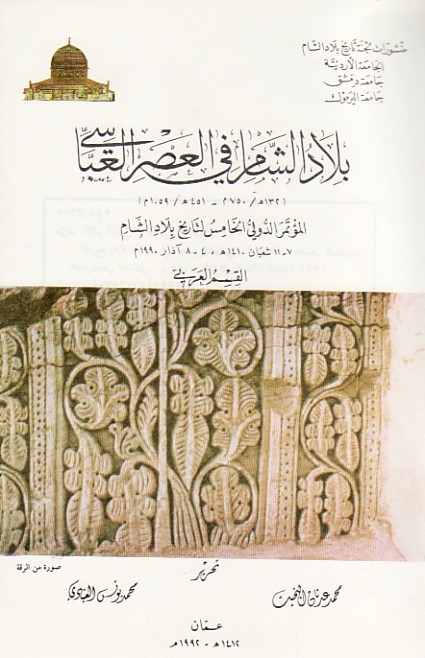 منشورات لجنة تاريخ بلاد الشام
الجامعة الأردنية
جامعة دمشق
جامعة اليرموك
بلاد الشام في العصر العباسي
(١٣٢هـ/٧٥٠م - ٤٥١هـ/١٠٥٩م)
المؤتمر الدولي الخامس لتاريخ بلاد الشام
٧-١١ شعبان ١٤١٠هـ، ٤-٨ آذار ١٩٩٠م
القسم العربي
صورة من الرقة
تحرير
محمد عدنان البخيت
محمد يونس العبادي
عمّان
١٤١٢هـ - ١٩٩٢م